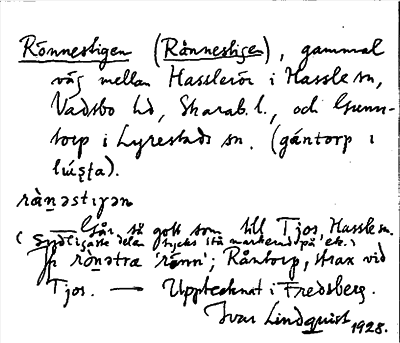 Rönnestigen (Rånnestigen), gammal
väg mellan Hasslerör i Hassle sn,
Vadsbo hd, Skarab. l., och Gunn-
torp i Lyrestads sn. (gántorp i
lı̇́ųsṭa).
rȧ̀n̠əstıɣən
— Går så gott som till Tjos, Hassle sn.
(Sydligaste delen tycks stå markerad på ek.)
Jfr rönətræ 'rönn'; Råntorp, strax vid
Tjos. — Upptecknat i Fredsberg.
Ivar Lindquist 1928.